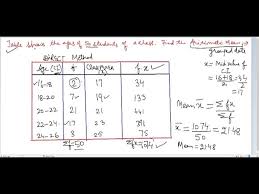 Table shows the ages of 50 students of a class. Find the Arithmetic Mean
grouped data
DIRECT Method
Age (CI) f Class Mark f.x
16-18 2 17 34
18-20 7 19 133
20-22 21 21 441
22-24 17 23 391
24-26 3 25 75
Σf=50
x = Mid value of CI
16+18 = 34
2
= 17
Mean x̄ = Σfx
Σf
x̄ = 1074 = 21.48
50
Mean = 21.48